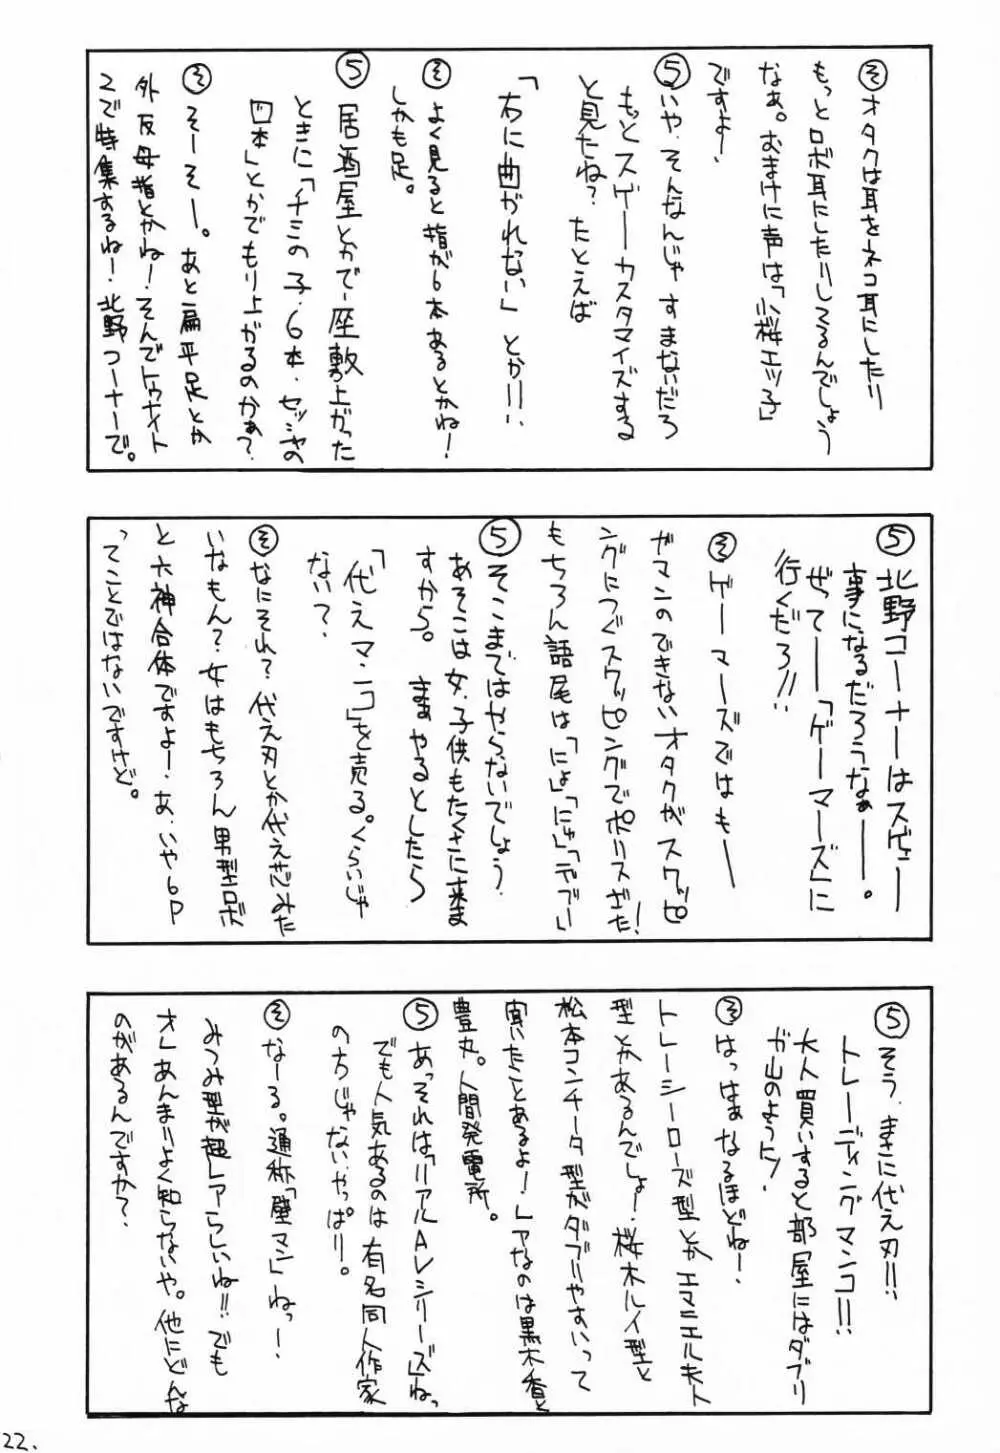 そ オタクは耳をネコ耳にしたり
もっとロボ耳にしたりしてるんでしょう
なぁ。おまけに声は「小桜エツ子」
ですよー
5 いや、そんなんじゃすまないだろ
もっとスゲーカスタマイズする
と見たね？たとえば
「右に曲がれない」とか!!、
そ よく見ると指が6本あるとかね！
しかも足。
5 居酒屋とかで座敷上がった
ときに「チミの子、6本、セッシャの
四本」とかでもり上がるのかぁ？
そ そーそー。あと扁平足とか
外反母指とかね！そんでトゥナイト
2で特集するね！北野コーナーで。
5 北野コーナーはスゲェー
事になるだろうなぁー。
ぜってー「ゲーマーズ」に
行くだろ!!
そ ゲーマーズではもー
ガマンのできないオタクがスワッピ
ングにつぐスワッピングでポリスざた！
もちろん語尾は「にょ」「にゅ」「でつ」
5 そこまではやらないでしょう、
あそこは女、子供もたくさん来ま
すから。まぁやるとしたら
「代えマンコ」を売る。くらいじゃ
ない？
そ なにそれ？代え刃とか代え芯みた
いなもん？女はもちろん男型ロボ
と六神合体ですよー、あ、いや6P
ってことではないですけど。
5 そう、まさに代え刃!!
トレーディングマンコ!!
大人買いすると部屋にはダブリ
が山のように！
そ はっはぁなるほどねー、
トレーシーローズ型とかエマニエル夫人
型とかあるんでしょー、桜木ルイ型と
松本コンチータ型がダブりやすいって
聞いたことあるよー！レアなのは黒木香と
豊丸。人間発電所。
5 あっそれは「リアルAVシリーズ」ねっ
でも人気あるのは有名同人作家
のちじゃない、やっぱり。
そ なーる。通称「壁マン」ねっ！
みつみ型が超レアらしいね!!でも
オレあんまりよく知らないや。他にどんな
のがあるんですか？
22.